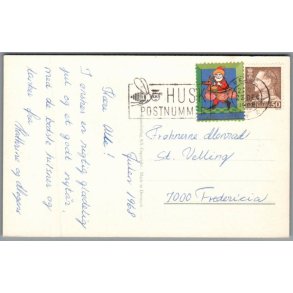 Julen 1968
Kære Alle!
I ønskes en rigtig glædelig
jul og et godt nytår
med de bedste hilsner og
tanker fra
HUSK
POSTNUMMER
50
Frøknerne Monrad
St. Velling
7000 Fredericia